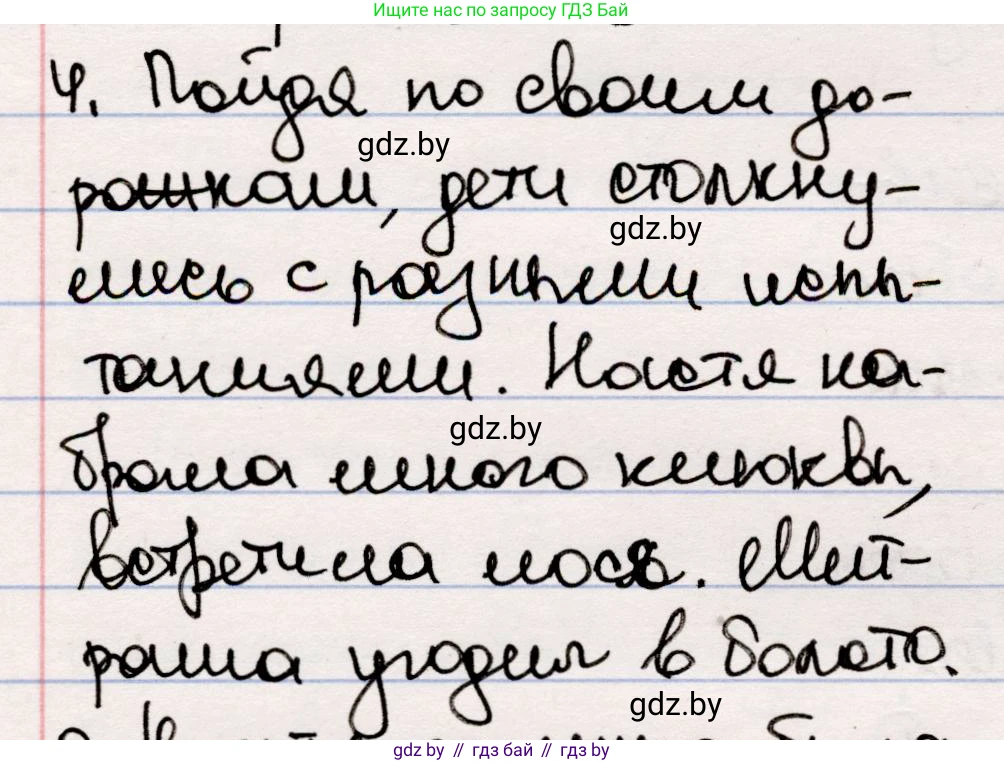 Ищите нас по запросу ГДЗ Бай
4. Пойдя по своим до-
рожкам, дети столкну-
лись с разными испы-
таниями. Настя на-
gdz.by
gdz.by
gdz.by
брала много клюквы,
встретила лося. Мит-
раша угодил в болото.
gdz.by
gdz.by // гдз бай // гдз by